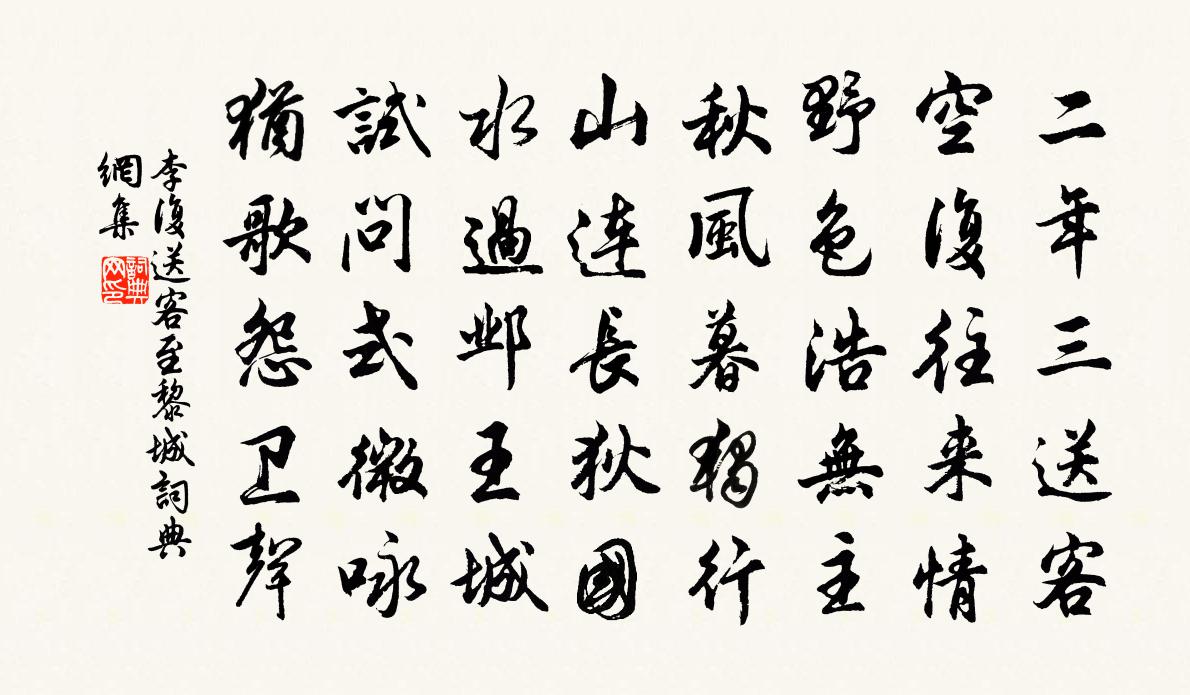 二年三送客
空復往来情
野色浩無主
秋風暮獨行
山連長狄國
水過邺王城
試問式微咏
猶歌怨卫聲
李復送客至黎城詞典
網集
詞典
网印